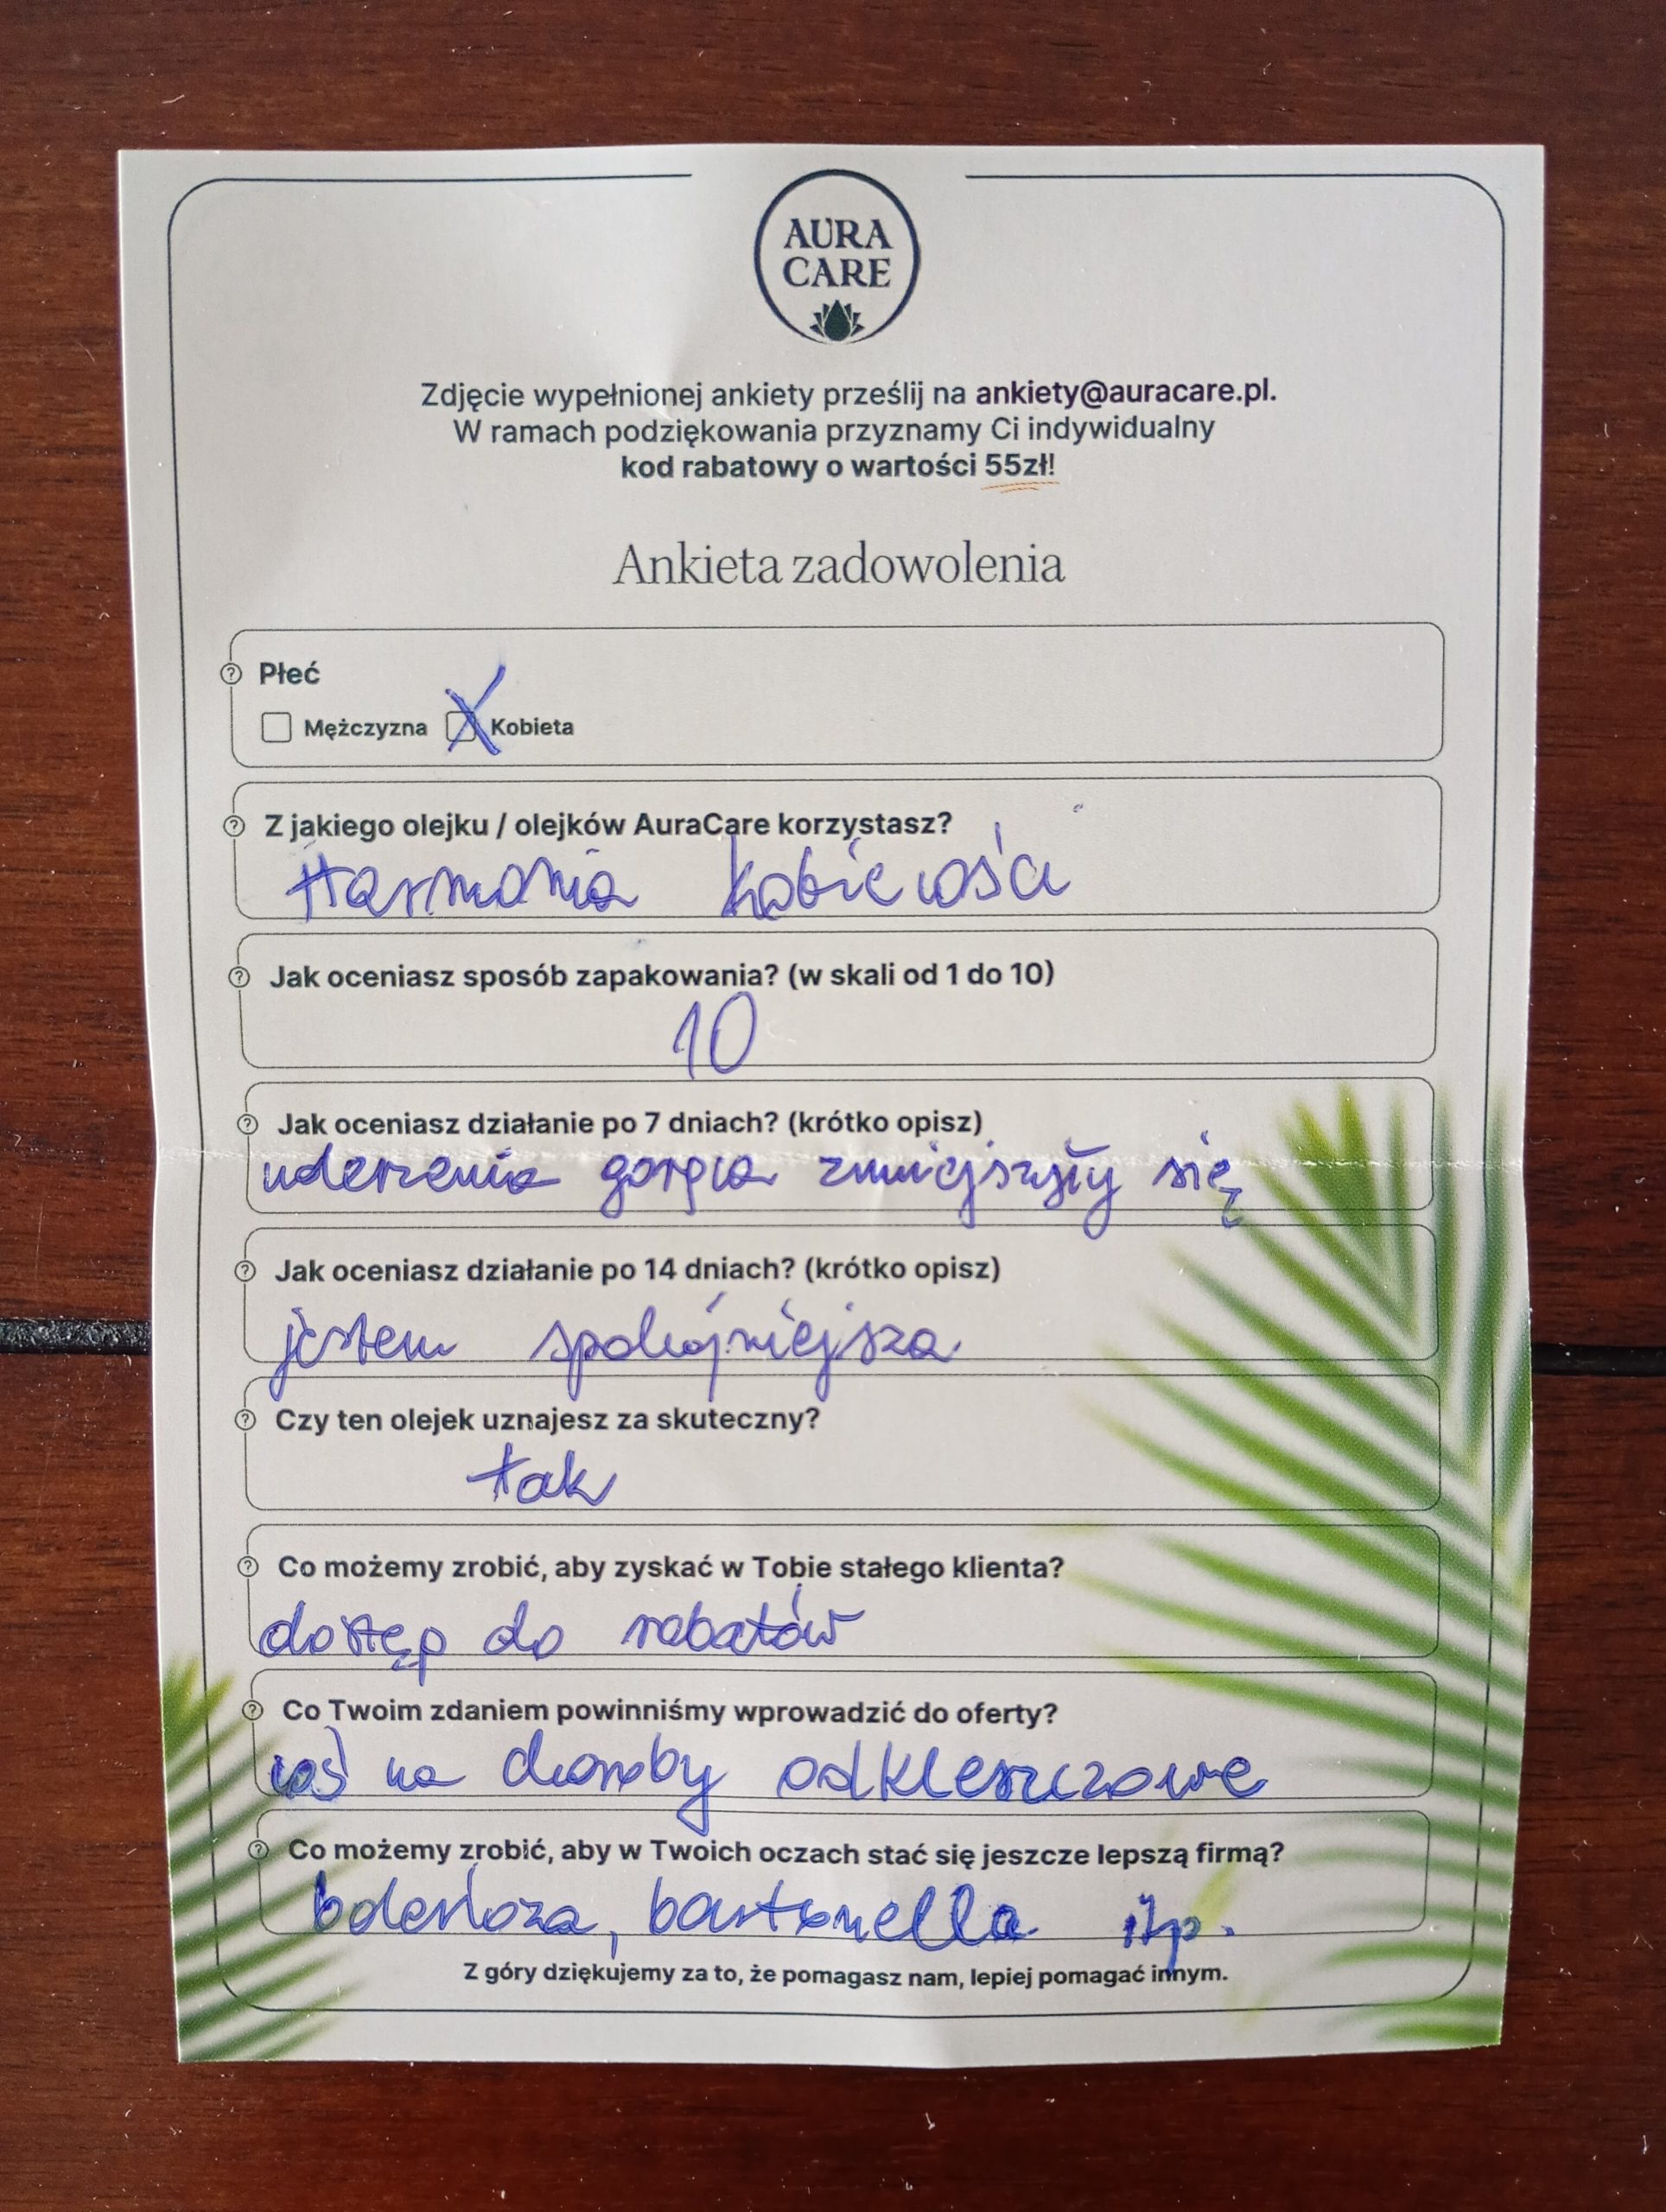 AURA
CARE
Zdjęcie wypełnionej ankiety prześlij na ankiety@auracare.pl.
W ramach podziękowania przyznamy Ci indywidualny
kod rabatowy o wartości 55zł!
Ankieta zadowolenia
Płeć
Mężczyzna X Kobieta
Z jakiego olejku / olejków AuraCare korzystasz?
Harmonia kobiecości
Jak oceniasz sposób zapakowania? (w skali od 1 do 10)
10
Jak oceniasz działanie po 7 dniach? (krótko opisz)
uderzenia gorąca zmniejszyły się
Jak oceniasz działanie po 14 dniach? (krótko opisz)
jestem spokojniejsza
Czy ten olejek uznajesz za skuteczny?
tak
Co możemy zrobić, aby zyskać w Tobie stałego klienta?
dostęp do rabatów
Co Twoim zdaniem powinniśmy wprowadzić do oferty?
coś na choroby odkleszczowe
Co możemy zrobić, aby w Twoich oczach stać się jeszcze lepszą firmą?
bartonella itp.
Z góry dziękujemy za to, że pomagasz nam, lepiej pomagać innym.